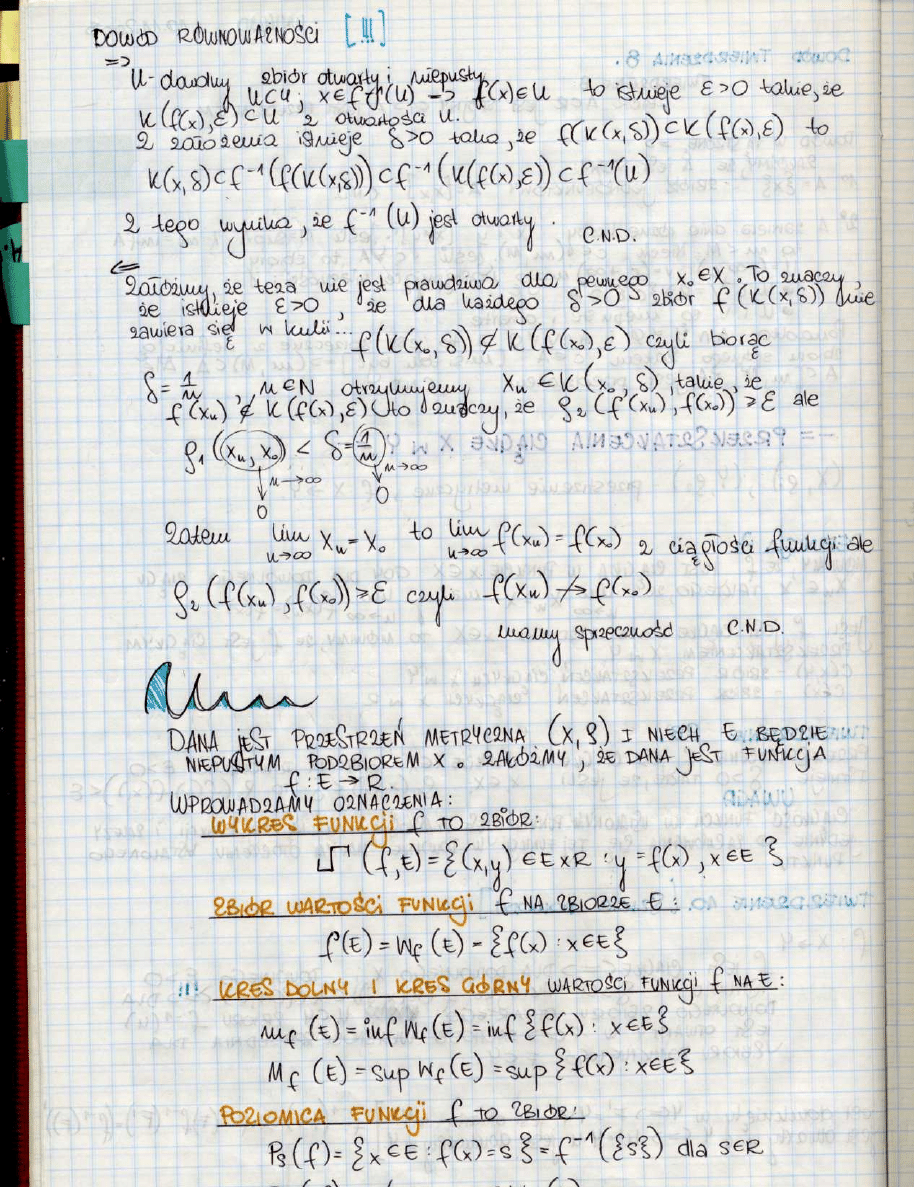 DOWÓD RÓWNOWAŻNOŚCI [!!!]
=>
U - dowolny zbiór otwarty i niepusty
U⊂Y; x∈f⁻¹(U) → f(x)∈U to istnieje ε>0 takie, że
K(f(x),ε)⊂U z otwartości U.
Z założenia istnieje δ>0 taka, że f(K(x,δ))⊂K(f(x),ε) to
K(x,δ)⊂f⁻¹(f(K(x,δ)))⊂f⁻¹(K(f(x),ε))⊂f⁻¹(U)
Z tego wynika, że f⁻¹(U) jest otwarty.
C.N.D.
<=
Załóżmy, że teza nie jest prawdziwa dla pewnego x₀∈X. To znaczy,
że istnieje ε>0, że dla każdego δ>0 zbiór f(K(x,δ)) nie
zawiera się w kulii...
f(K(x₀,δ))⊄K(f(x₀),ε) czyli biorąc
δ=1/n, n∈N otrzymujemy xₙ∈K(x₀,δ), takie, że
f(xₙ)∉K(f(x),ε) to znaczy, że ρ₂(f(xₙ),f(x₀))>ε ale
ρ₁(xₙ,x₀) < δ=1/n
n→∞ n→∞
0 0
Zatem lim xₙ=x₀ to lim f(xₙ)=f(x₀) z ciągłości funkcji ale
n→∞ n→∞
ρ₂(f(xₙ),f(x₀))>ε czyli f(xₙ)↛f(x₀)
mamy sprzeczność C.N.D.
DANA JEST PRZESTRZEŃ METRYCZNA (X,ρ) I NIECH E BĘDZIE
NIEPUSTYM PODZBIOREM X. ZAŁÓŻMY, ŻE DANA JEST FUNKCJA
f:E→R.
WPROWADZAMY OZNACZENIA:
WYKRES FUNKCJI f TO ZBIÓR:
(f,E)={(x,y)∈E×R : y=f(x), x∈E}
ZBIÓR WARTOŚCI FUNKCJI f NA ZBIORZE E:
f(E)=W_f(E)={f(x) : x∈E}
!!! KRES DOLNY I KRES GÓRNY WARTOŚCI FUNKCJI f NA E:
m_f(E)=inf W_f(E)=inf{f(x) : x∈E}
M_f(E)=sup W_f(E)=sup{f(x) : x∈E}
POZIOMICA FUNKCJI f TO ZBIÓR:
P_s(f)={x∈E : f(x)=s}=f⁻¹({s}) dla s∈R